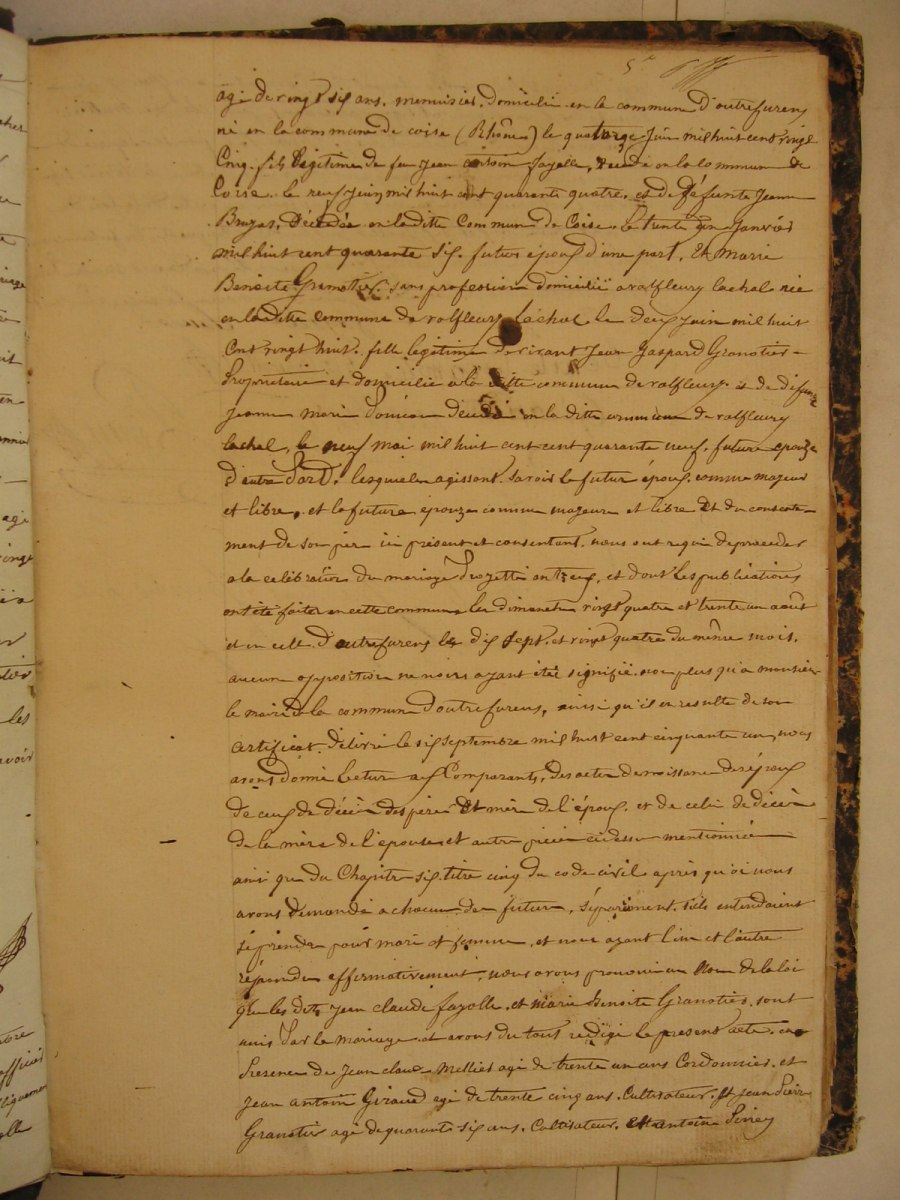 5e
agé de vingt six ans. menuisier. domicilié en la commune d'outrefurens
né en la commune de coise (Rhône) le quatorze Juin mil huit cent vingt
Cinq. fils légitime de feu Jean antoine fayolle, décédé en la commune de
Coise. le neuf juin mil huit cent quarante quatre. et de défunte Jeanne
décédée en la ditte Commune de Coise. le trente un Janvier
mil huit cent quarante six. futur époux d'une part. Et Marie
Benoite Granotier. sans profession domicilié a valfleury lachal née
en la ditte commune de valfleury Lachal le deux juin mil huit
Cent vingt huit. fille légitime de vivant Jean Gaspard Granotier -
Propriétaire et domicilié a la ditte commune de valfleury et de défunte
Jeanne marie décédée en la ditte commune de valfleury
lachal, le neuf mai mil huit cent cent quarante neuf. future epouze
d'autre Part. lesquels agissant. savoir le futur époux. comme majeur
et libre, et la future epouze comme majeure et libre Et du consente-
ment de son père ici présent et consentant. nous ont requis de proceder
a la celébration du mariage Projetté entr'eux, et dont les publications
ont été faites en cette commune les dimanches vingt quatre et trente un août
et en celle d'outrefurens les dix sept. et vingt quatre du même mois.
aucune opposition ne nous ayant été signifiée. non plus qu'a monsieur
le maire de la commune d'outrefurens, ainsi qu'il en resulte de son
certificat. délivré le six septembre mil huit cent cinquante un, nous
avons donné lecture aux Comparants, des actes de naissance des époux
de ceux de décès des père Et mère de l'époux. et de celui de décès
de la mère de l'épouse et autre pièce ci dessus mentionnée
ainsi que du Chapitre six titre cinq du code civil après quoi nous
avons demandé a chacun des futurs, séparément. s'ils entendaient
se prendre pour mari et femme, et nous ayant l'un et l'autre
répondu affirmativement, nous avons prononcé au Nom de la loi
que les dits Jean claude fayolle. et marie Benoite Granotier. sont
unis Par le mariage et avons du tout redigé le present acte. en
Presence de Jean claude Mellier agé de trente un ans Cordonnier. et
Jean antoine Giraud agé de trente cinq ans. Cultivateur. Et Jean Pierre
Granotier agé de quarante six ans. Cultivateur. Et antoine